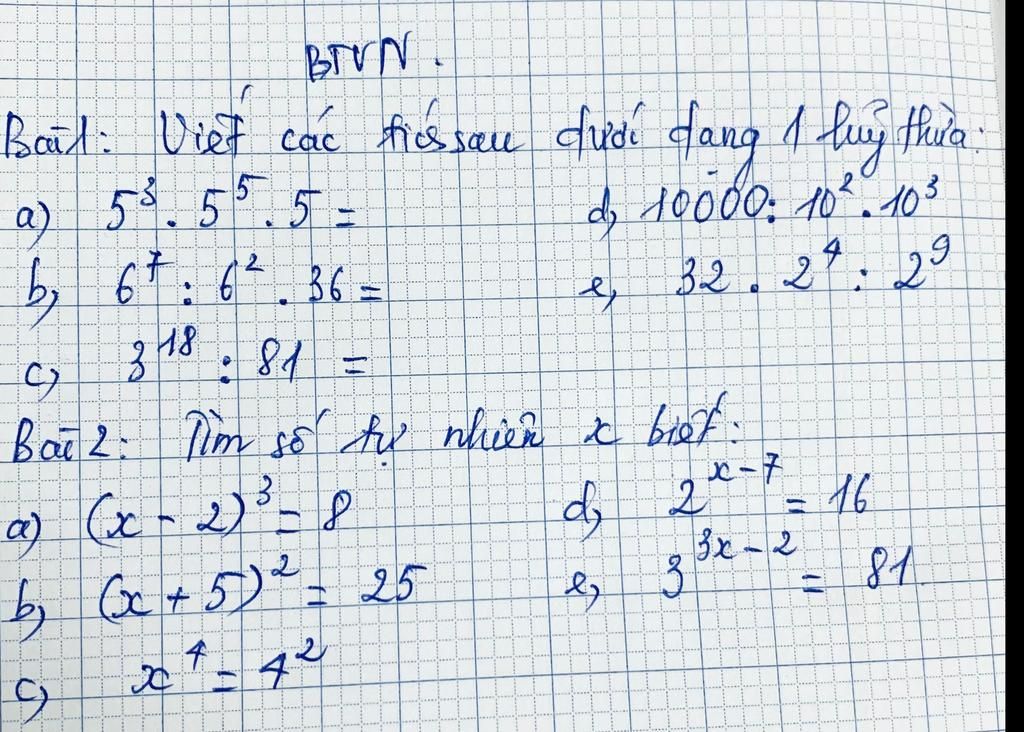 BTVN.
Bài 1: Viết các tích sau dưới dạng 1 luỹ thừa:
a) 5³ . 5⁵ . 5 = d, 10000 : 10² . 10³
b, 6⁷ : 6² . 36 = e, 32 . 2⁴ : 2⁹
c, 3¹⁸ : 81 =
Bài 2: Tìm số tự nhiên x biết:
a) (x - 2)³ = 8 d, 2ˣ⁻⁷ = 16
b, (x + 5)² = 25 e, 3³ˣ⁻² = 81
c, x⁴ = 4²